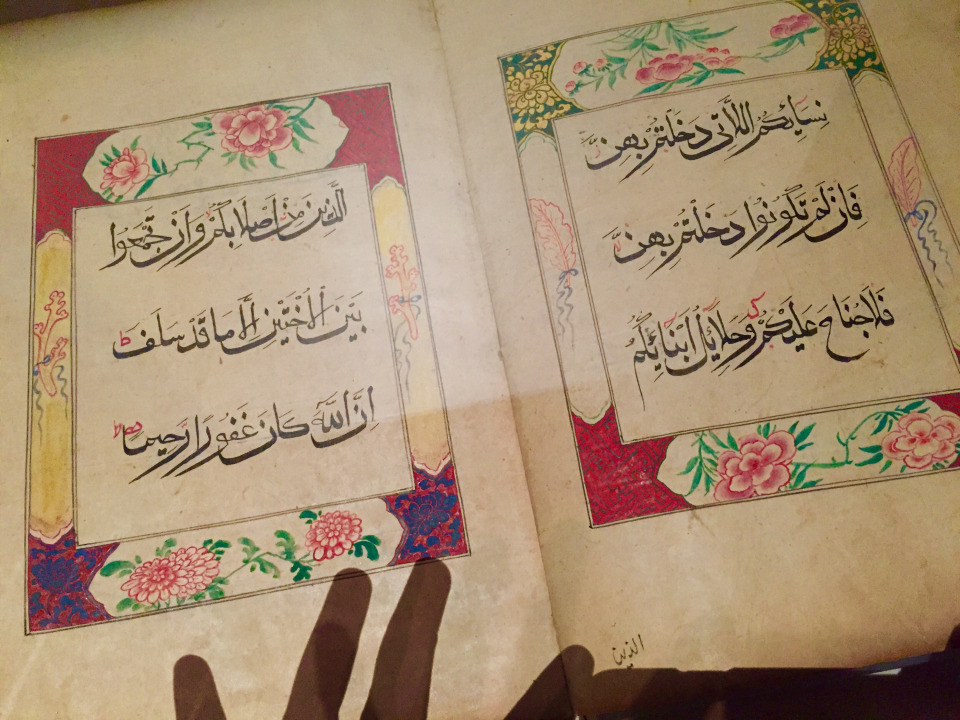 نِسَائِكُمُ اللَّاتِي دَخَلْتُمْ بِهِنَّ
فَإِنْ لَمْ تَكُونُوا دَخَلْتُمْ بِهِنَّ
فَلَا جُنَاحَ عَلَيْكُمْ وَحَلَائِلُ أَبْنَائِكُمُ
الذين
الَّذِينَ مِنْ أَصْلَابِكُمْ وَأَنْ تَجْمَعُوا
بَيْنَ الْأُخْتَيْنِ إِلَّا مَا قَدْ سَلَفَ
إِنَّ اللَّهَ كَانَ غَفُورًا رَحِيمًا